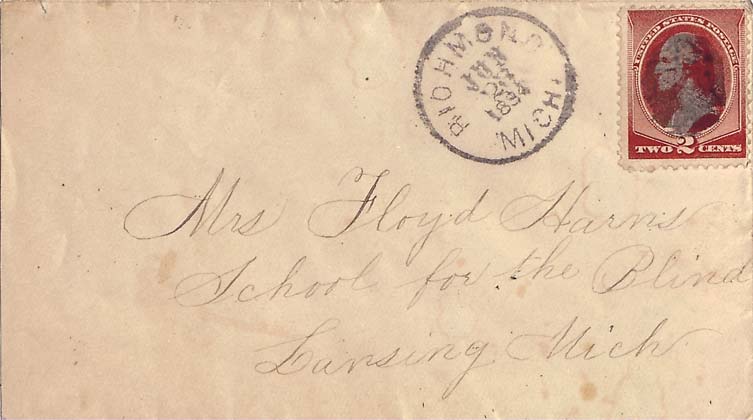 RICHMOND
MICH.
JUN
UNITED STATES POSTAGE
TWO 2 CENTS
Mrs Floyd Harris
School for the Blind
Lansing Mich